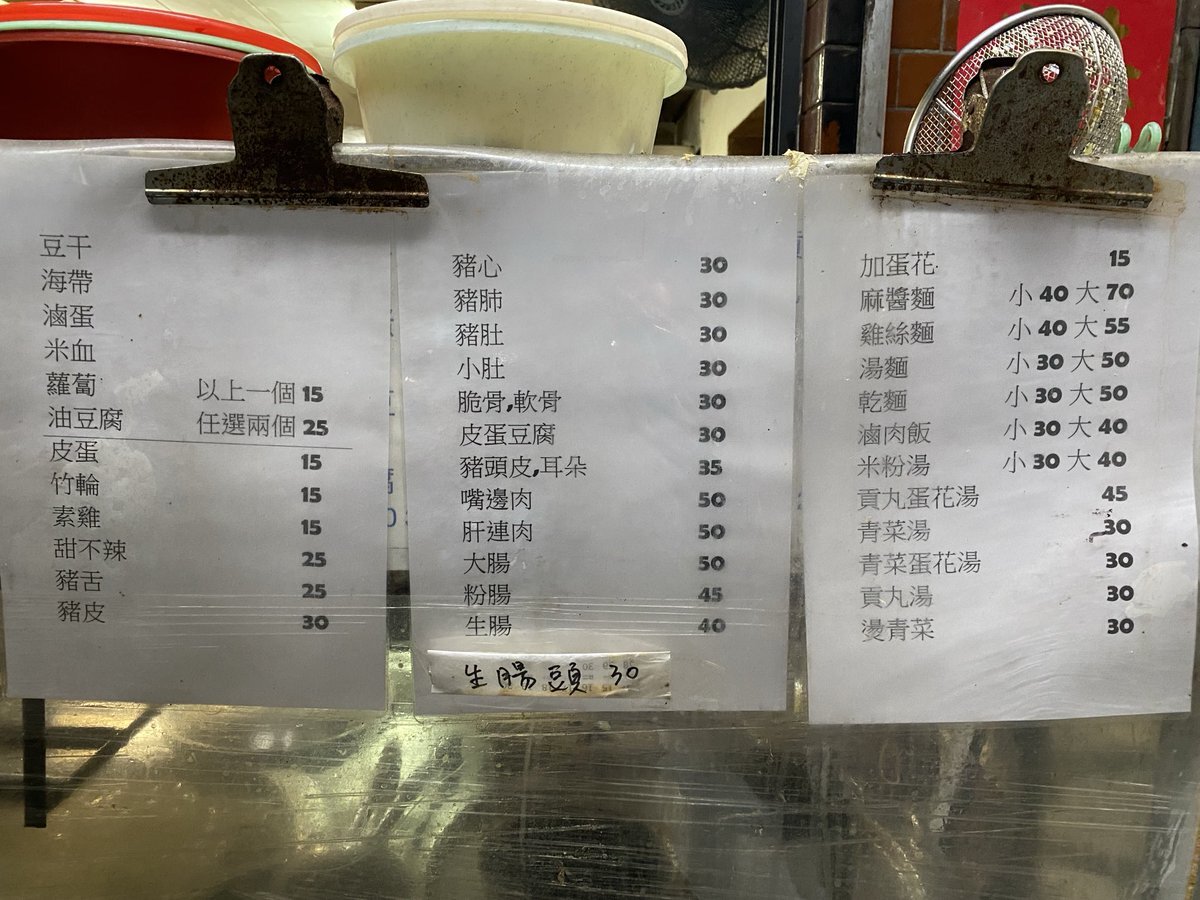 豆干
海帶
滷蛋
米血
蘿蔔 以上一個 15
油豆腐 任選兩個 25
皮蛋 15
竹輪 15
素雞 15
甜不辣 25
豬舌 25
豬皮 30
豬心 30
豬肺 30
豬肚 30
小肚 30
脆骨,軟骨 30
皮蛋豆腐 30
豬頭皮,耳朵 35
嘴邊肉 50
肝連肉 50
大腸 50
粉腸 45
生腸 40
生腸頭 30
加蛋花 15
麻醬麵 小 40 大 70
雞絲麵 小 40 大 55
湯麵 小 30 大 50
乾麵 小 30 大 50
滷肉飯 小 30 大 40
米粉湯 小 30 大 40
貢丸蛋花湯 45
青菜湯 30
青菜蛋花湯 30
貢丸湯 30
燙青菜 30